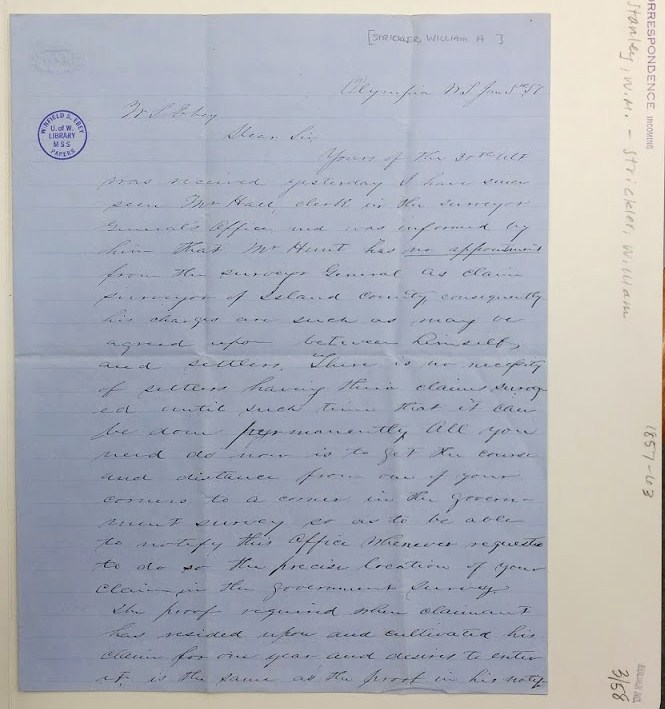 [STRICKLER, WILLIAM A ]
Olympia W.T. Jan 5th 57
W S Ebey
Dear Sir
Yours of the 30th Ult
was received yesterday I have since
seen Mr Hall, clerk in the surveyor
General's Office and was informed by
him that Mr Hunt has no appointment
from the surveyor General as claim
surveyor of Island County consequently
his charges are such as may be
agreed upon between himself
and settlers. There is no necessity
of settlers having their claims survey
ed until such time that it can
be done permanently All you
need do now is to get the course
and distance from one of your
corners to a corner in the govern-
ment survey so as to be able
to notify this Office whenever requested
to do so the precise location of your
claim in the government survey.
The proof required when claimant
has resided upon and cultivated his
claim for one year and desires to enter
it, is the same as the proof in his notif-
WINFIELD S. EBEY
U. of W.
LIBRARY
MSS
PAPERS
CORRESPONDENCE INCOMING
Stanley, W.M. - Strickler, William
1857-63
3/58